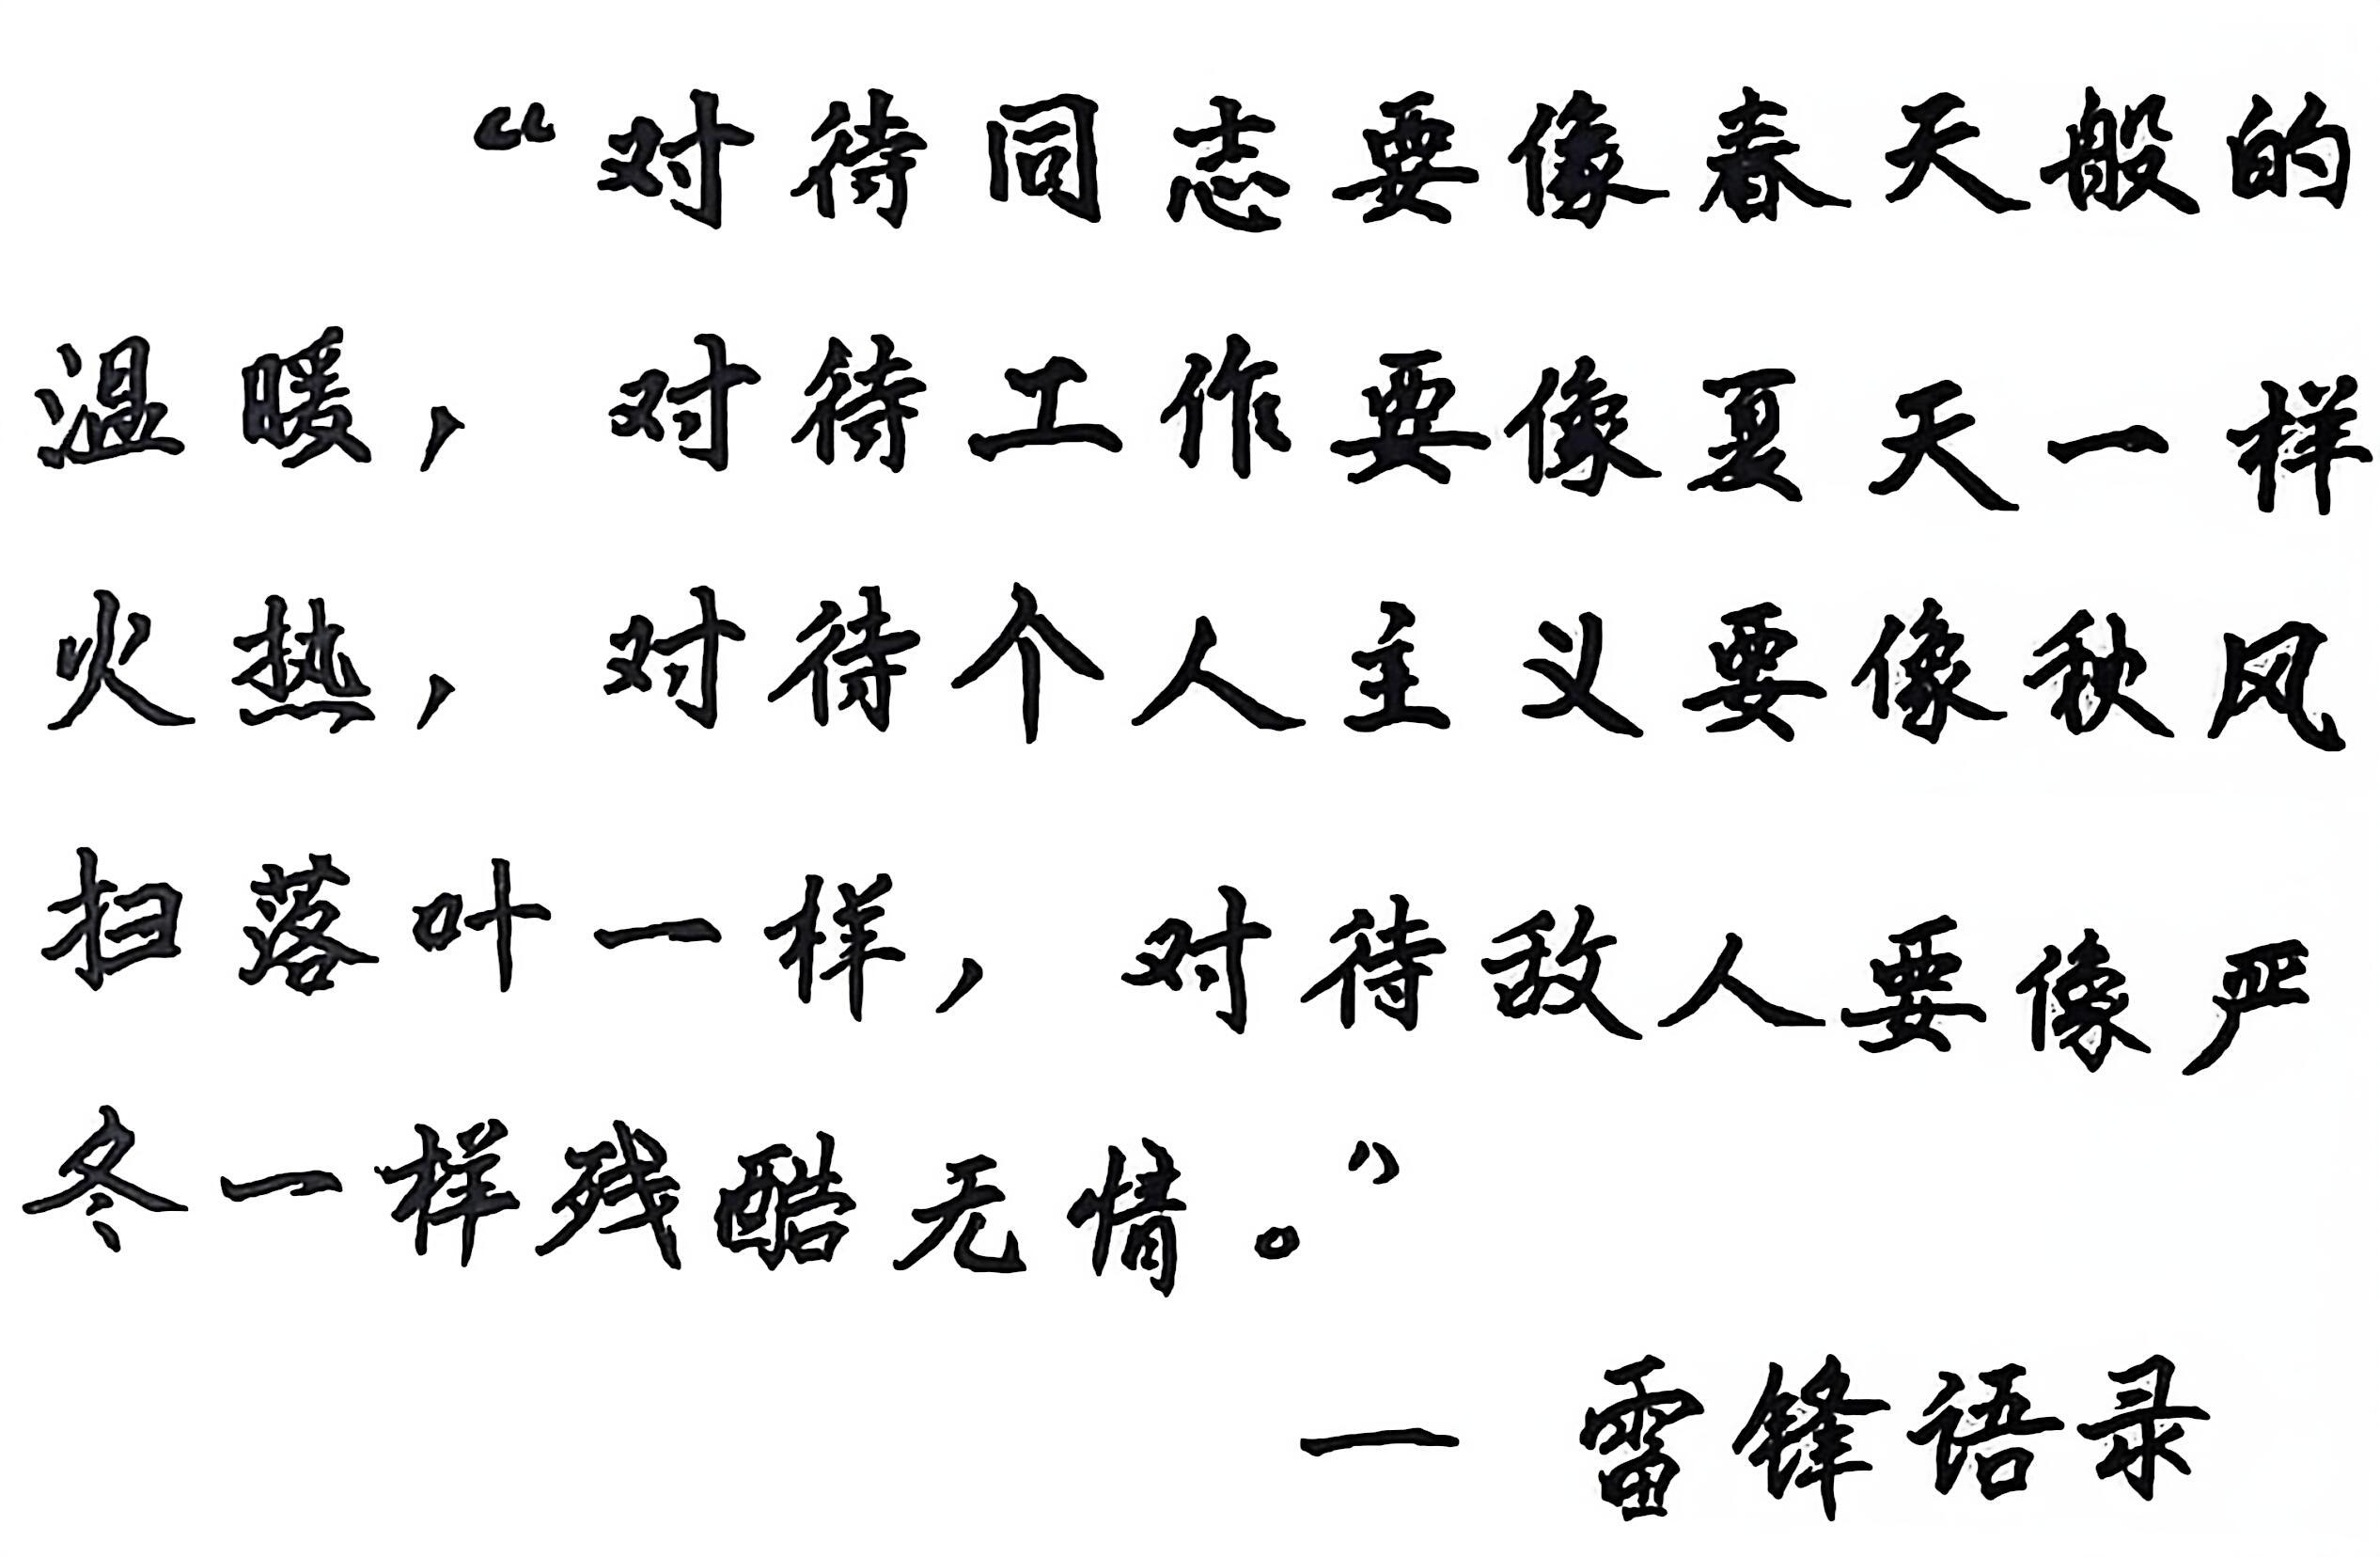 “对待同志要像春天般的
温暖，对待工作要像夏天一样
火热，对待个人主义要像秋风
扫落叶一样，对待敌人要像严
冬一样残酷无情。”
— 雷锋语录